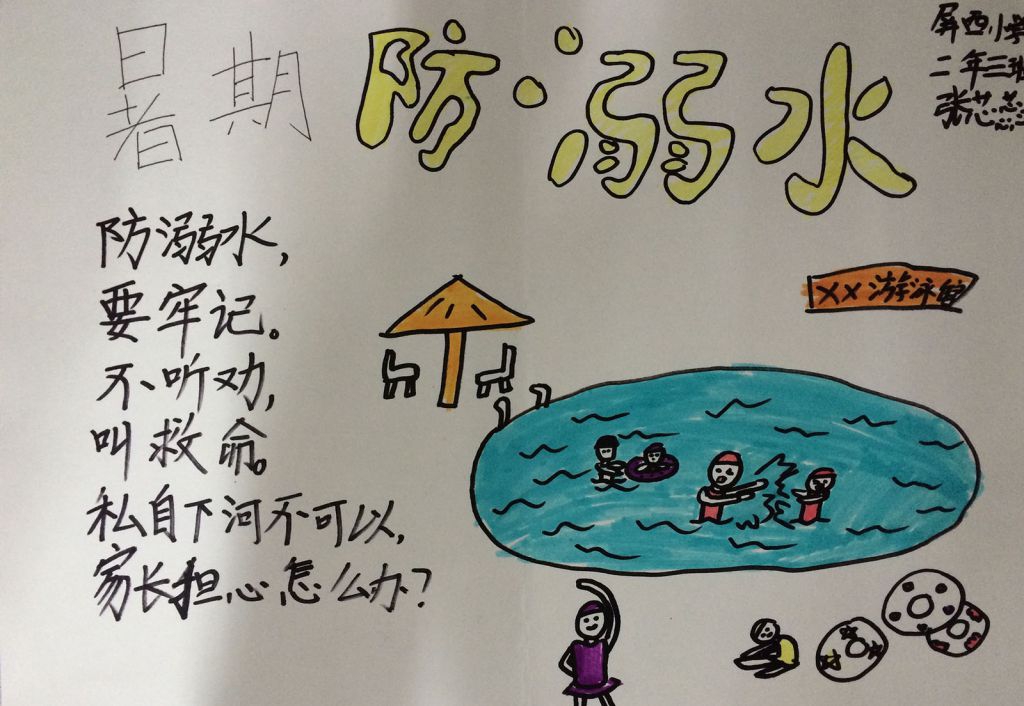 暑期防溺水
屏西小学
二年三班
张芯
防溺水,
要牢记。
不听劝,
叫救命。
私自下河不可以,
家长担心怎么办?
XX游泳馆